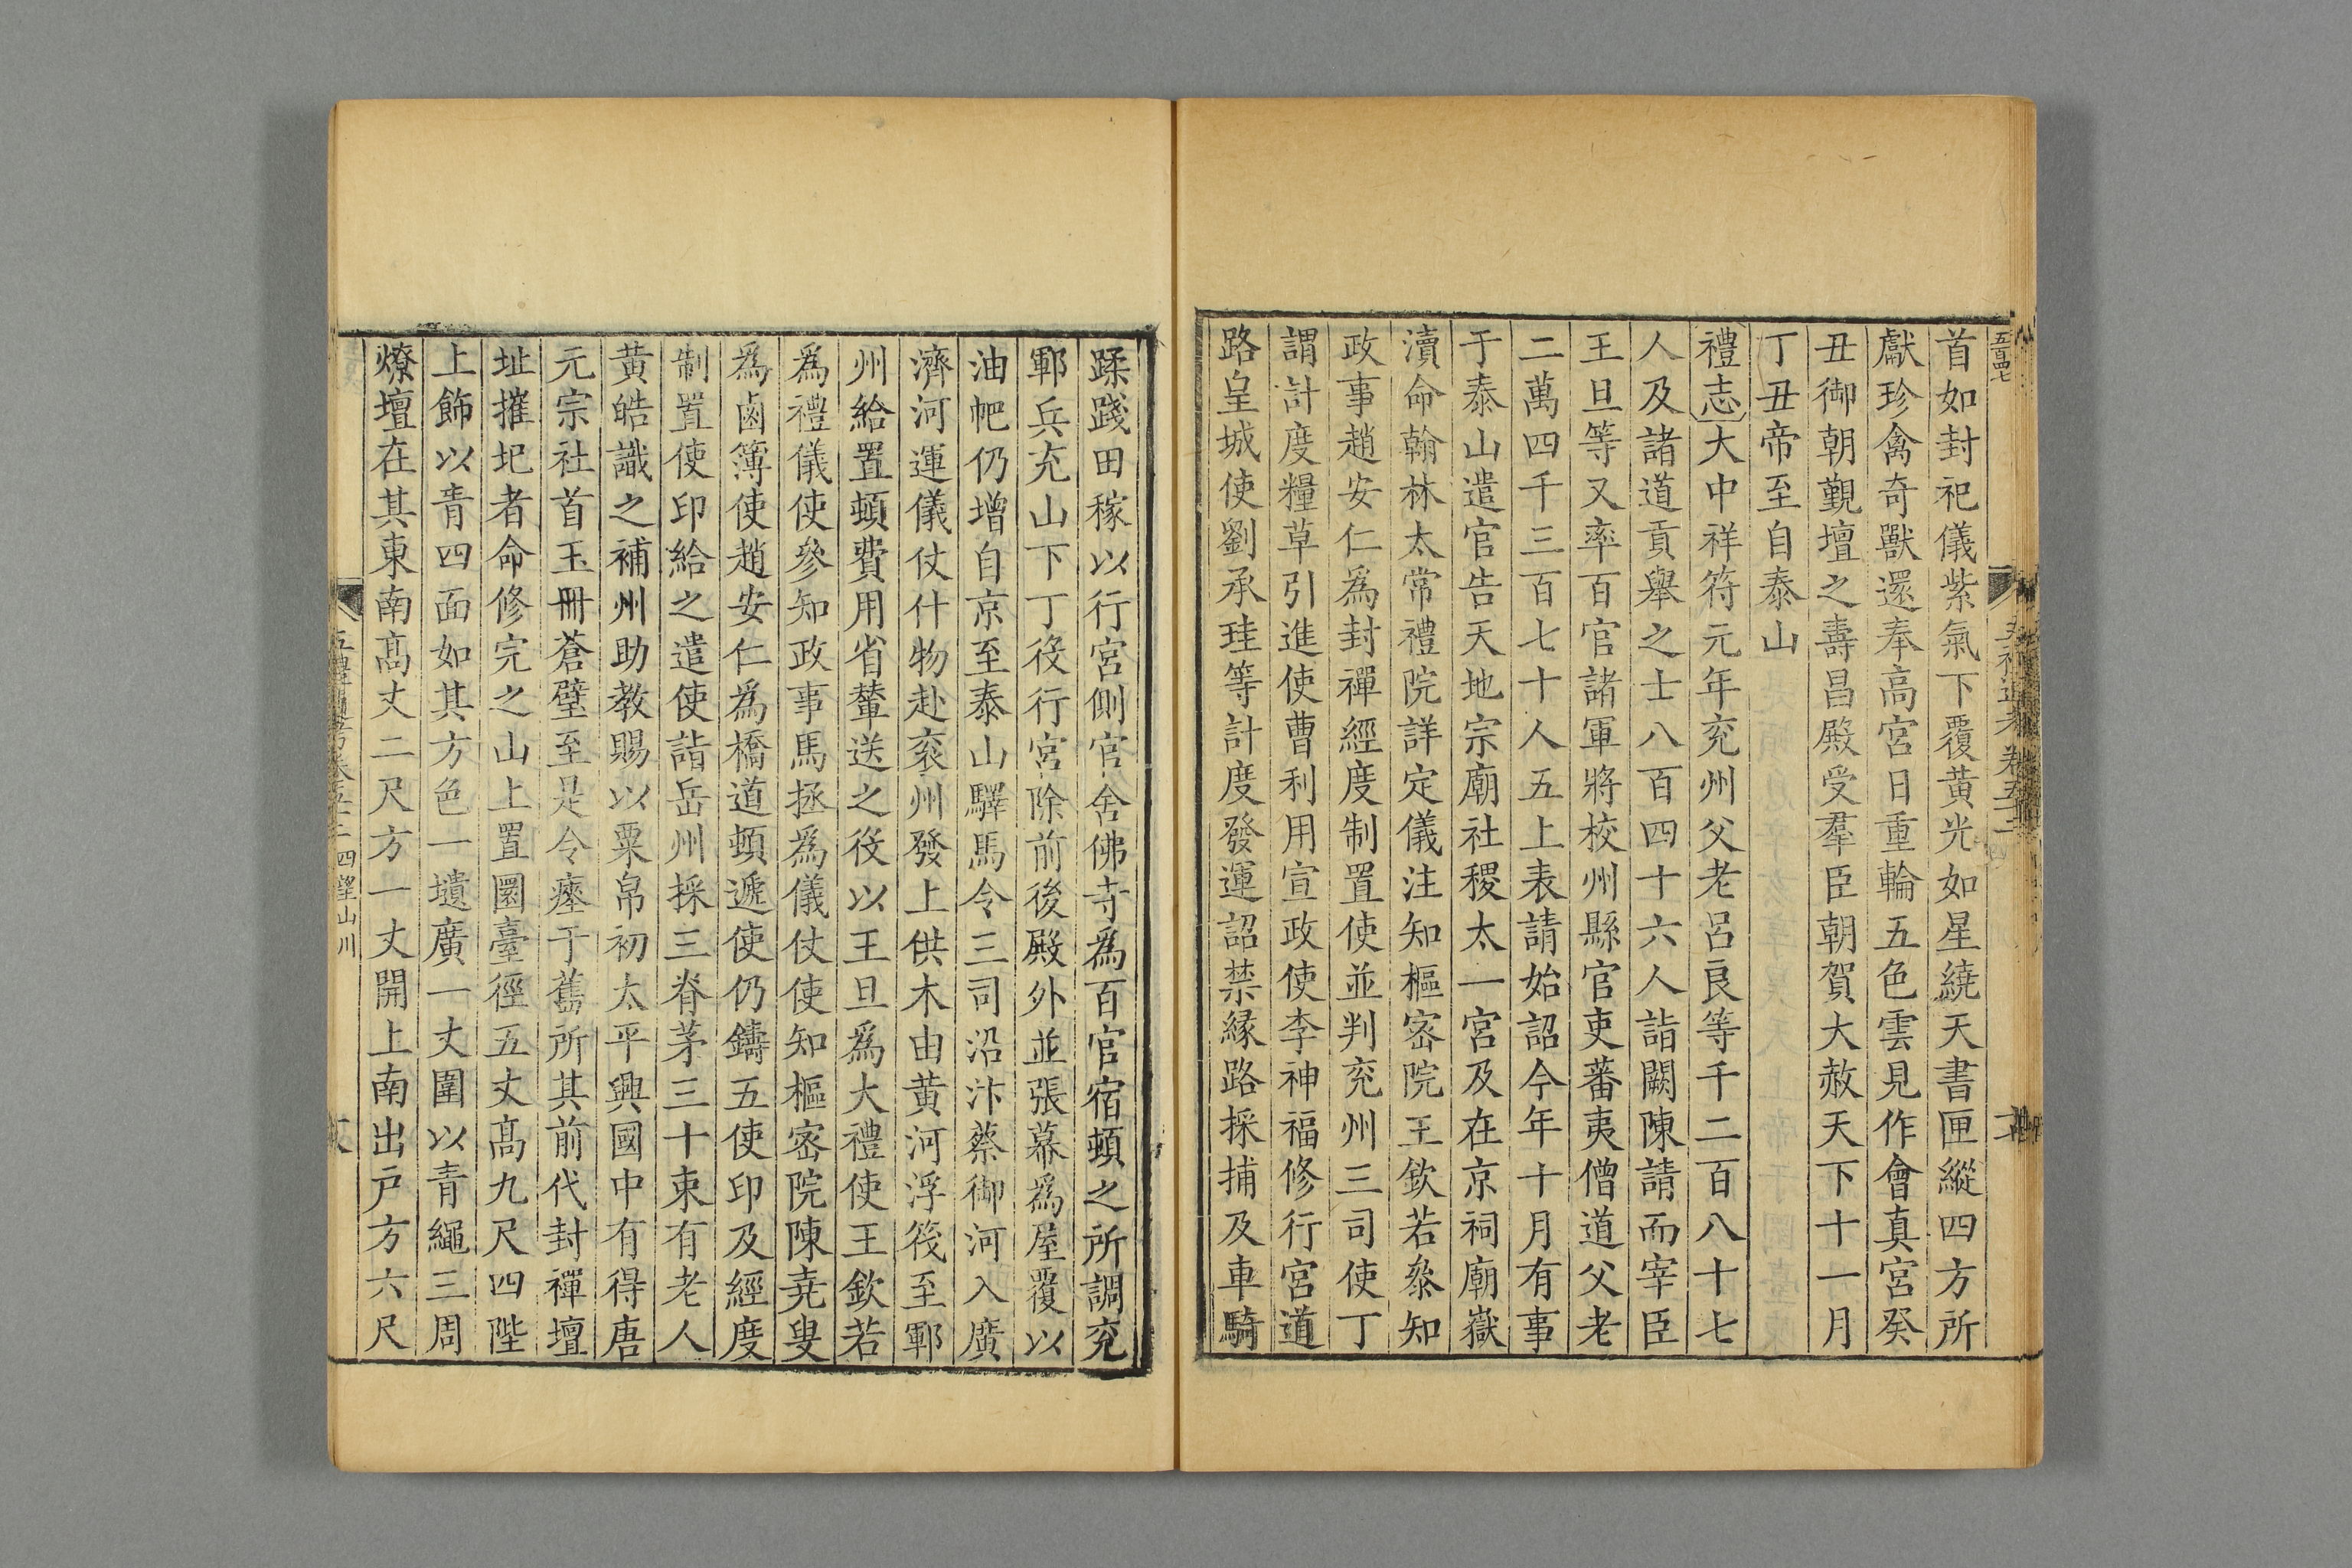 首如封祀儀紫氣下覆黃光如星繞天書匣縱四方所
獻珍禽奇獸還奉高宮日重輪五色雲見作會真宮癸
丑御朝覲壇之壽昌殿受羣臣朝賀大赦天下十一月
丁丑帝至自泰山
禮志大中祥符元年兖州父老呂良等千二百八十七
人及諸道貢舉之士八百四十六人詣闕陳請而宰臣
王旦等又率百官諸軍將校州縣官吏蕃夷僧道父老
二萬四千三百七十人五上表請始詔今年十月有事
于泰山遣官告天地宗廟社稷太一宮及在京祠廟嶽
瀆命翰林太常禮院詳定儀注知樞宻院王欽若叅知
政事趙安仁爲封禪經度制置使並判兖州三司使丁
謂計度糧草引進使曹利用宣政使李神福修行宮道
路皇城使劉承珪等計度發運詔禁縁路採捕及車騎
蹂踐田稼以行宮側官舍佛寺爲百官宿頓之所調兖
鄆兵充山下丁役行宮除前後殿外並張幕爲屋覆以
油帊仍增自京至泰山驛馬令三司沿汴蔡御河入廣
濟河運儀仗什物赴兖州發上供木由黃河浮筏至鄆
州給置頓費用省輦送之役以王旦爲大禮使王欽若
爲禮儀使參知政事馬拯爲儀仗使知樞宻院陳堯叟
爲鹵簿使趙安仁爲橋道頓遞使仍鑄五使印及經度
制置使印給之遣使詣岳州採三脊茅三十束有老人
黃皓識之補州助教賜以粟帛初太平興國中有得唐
元宗社首玉冊蒼璧至是令瘞于舊所其前代封禪壇
址摧圮者命修完之山上置圜臺徑五丈髙九尺四陛
上飾以青四面如其方色一壝廣一丈圍以青繩三周
燎壇在其東南髙丈二尺方一丈開上南出戶方六尺
四望山川